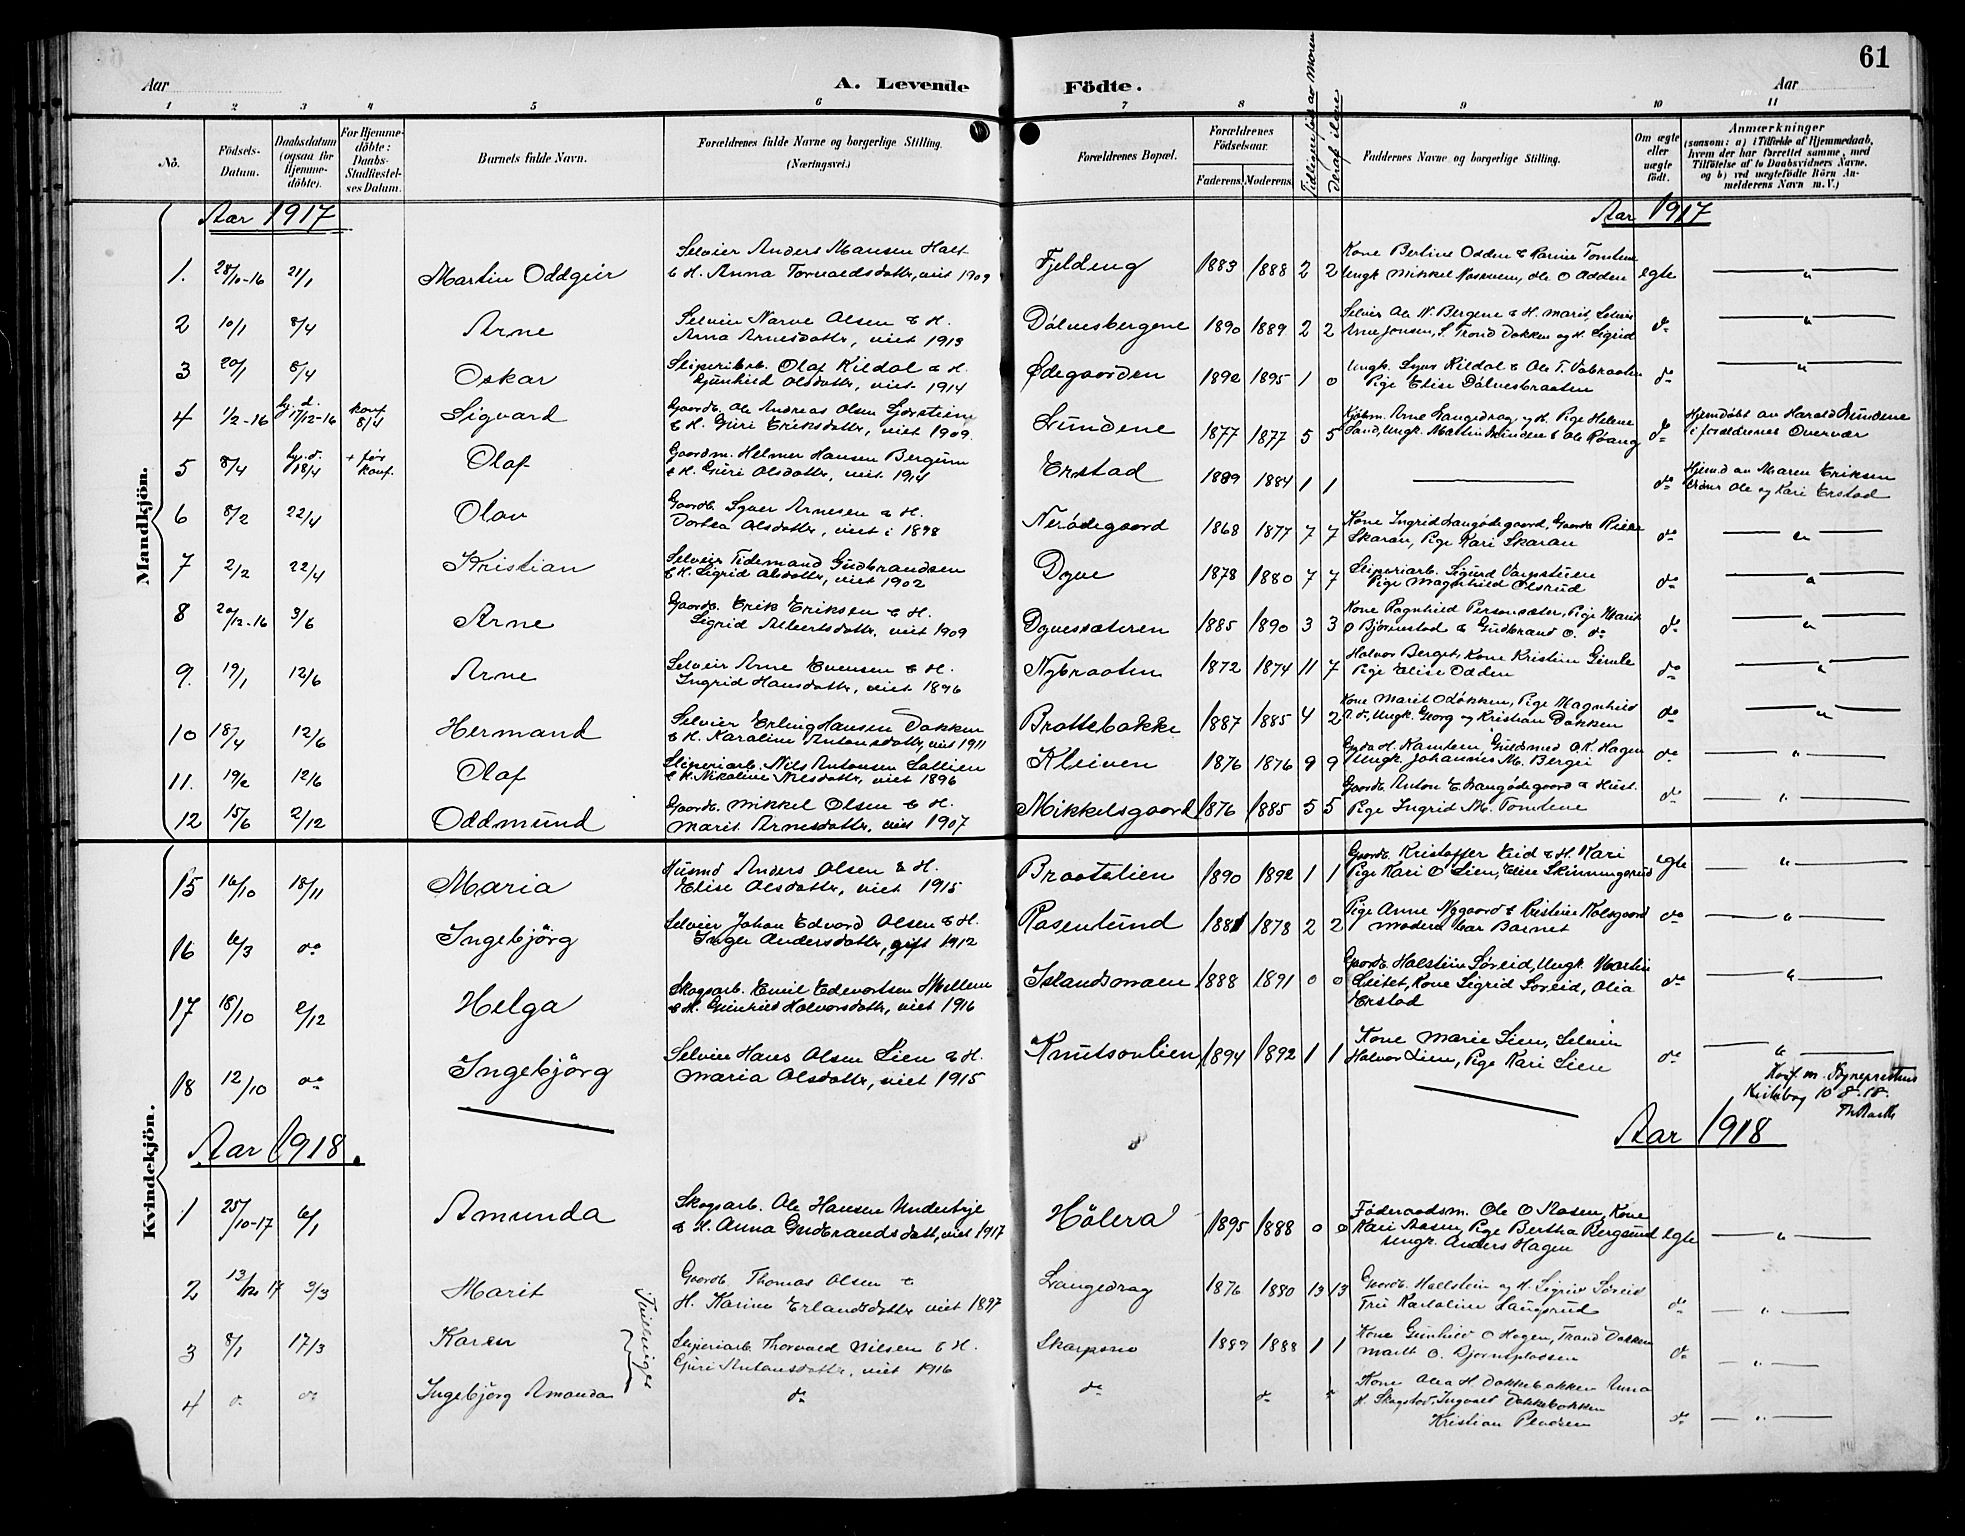 61
Aar A. Levende Födte. Aar
1 2 3 4 5 6 7 8 9 10 11
No.
Födsels-Datum.
Daabsdatum (ogsaa for Hjemme-döbte).
For Hjemme-döbte: Daabs-Stadfæstel-ses Datum.
Barnets fulde Navn.
Forældrenes fulde Navne og borgerlige Stilling. (Næringsvei.)
Forældrenes Bopæl.
Forældrenes Födselsaar.
Faderens. Moderens.
Faddernes Navne og borgerlige Stilling.
Om ægte eller uægte födt.
Anmærkninger
(saasom: a) i Tilfælde af Hjemmedaab, hvem der har forrettet samme, med Tilföielse af to Daabsvidners Navne, og b) ved uægtefödte Börn An-melderens Navn m. V.)
Mandkjön.
Aar 1917 Aar 1917
1. 28/10-16 21/1 Martin Oddgeir Selveier Anders Hansen Holt
& H. Anna Torvaldsdatter, viet 1909 Fjeldeng 1883 1888 2 2 Kone Bertine Odden & Karine Tomten
Ungk. Mikkel , Ole O Odden egte — " —
2 10/1 8/4 Arne Selveier Narve Olsen & H.
Arna Arnesdatter, viet 1913 Dölvesbergene 1890 1889 2 2 Selveier Ole N. Bergene & H. Marit, Selveier
Arne Jonsen, S. Trond Dokken og H. Sigrid do — " —
3 20/1 8/4 Oskar Sliperiarb. Olaf Kildal & H.
Gunhild Olsdatter, viet 1914 Ødegaarden 1892 1895 1 0 Ungk. Syver Kildal & Ole T. Vabraaten
Pige Elise Dölvesbraaten do — " —
4 1/2-16 hj.d. 17/12-16 konf. 8/4 Sigvard Gaardb. Ole Andreas Olsen
& H. Guri Eriksdatter, viet 1909. Lundene 1877 1877 5 5 Kjöbm. Arne Langedrag og H. Pige Helene
Sand, Ungk. Martin Lundene & Ole Röang do Hjemdöbt av Harald Lundene
i forældrenes Overvær
5 8/4 hj.d. 18/4 + før konf. Olaf Gaardm. Helmer Hansen Bergum
& H. Guri Olsdatter, viet 1914 Erstad 1889 1884 1 1 — do Hjemd. av Maren Eriksen
Ole og Kari Erstad
6 8/2 22/4 Olav Gaardb. Syver Arnesen & H.
Dorthea Olsdatter, viet i 1898 Nerødegaard 1868 1877 7 7 Kone Ingrid Langødegaard, Gaardb.
Skaran, Pige Kari Skaran do — " —
7 2/2 22/4 Kristian Selveier Tidemand Gudbrandsen
& H. Sigrid Olsdatter, viet 1902 Dyve 1878 1880 7 7 Sliperiarb. Sigurd
Pige Magnhild Olsrud do — " —
8 20/12-16 3/6 Arne Gaardb. Erik Eriksen & H.
Sigrid Albertsdatter, viet 1909 Dyvesæteren 1885 1890 3 3 Kone Ragnhild , Pige Marit
O Björnstad & Gudbrand O. do do — " —
9. 19/1 12/6 Arne Selveier Arne Evensen & H.
Ingrid Hansdatter, viet 1896 Nybraaten 1872 1874 11 7 Halvor Berget, Kone Kristine Gimle
Pige Elise Odden do — " —
10 18/4 12/6 Hermand Selveier Erling Hansen Dokken
& H. Karoline Antonsdatter, viet 1911 Brattebakke 1887 1885 4 2 Kone Marit , Pige Magnhild
Ungk. Georg og Kristian Dokken do — " —
11. 19/2 12/6 Olaf Sliperiarb. Nils Antonsen
& H. Nikoline Nilsdatter, viet 1896 Kleiven 1876 1876 9 9 Gyda H. , Guldsmed O.K. Hagen
Ungk. Johannes M. do — " —
12 15/6 2/12 Oddmund Gaardb. Mikkel Olsen & H.
Marit Arnesdatter, viet 1907 Mikkelsgaard 1876 1885 5 5 Gaardb. Anton E Langødegaard & Hust.
Pige Ingrid M. Tomtene do — " —
Kvindekjön.
15 16/10 18/11 Maria Husmd Anders Olsen & H.
Elise Olsdatter, viet 1915 Braatalien 1890 1892 1 1 Gaardb. Kristoffer Eid & H. Kari
Pige Kari O Lien, Elise Skinningsrud egte — " —
16 6/3 do Ingebjörg Selveier Johan Edvard Olsen & H.
Inger Andersdatter, gift 1912 Rosenlund 1881 1878 2 2 Pige Anne Nygaard &
Modern bar Barnet do — " —
17 18/10 2/12 Helga Skogsarb. Emil Edvartsen
& H. Gunhild Halvorsdatter, viet 1916 Islandsmoen 1888 1891 0 0 Gaardb. Halstein Søreid, Ungk. Martin
, Kone Sigrid Søreid, Olia
Erstad do — " —
18 12/10 do Ingebjörg Selveier Hans Olsen Lien & H.
Maria Olsdatter, viet 1915 Knutsonlien 1894 1892 1 1 Kone Marie Lien, Selveier
Halvor Lien, Pige Kari Lien do — " —
Konf. m.
10 8. 18.
Aar 1918. Aar 1918
1 25/10-17 6/1 Amunda Skogsarb. Ole Hansen
& H. Anna Gudbrandsdatt, viet 1917 Hölera 1895 1888 0 0 Föderaadsm. Ole O Rosen, Kone
Kari , Pige Bertha Bergsund
Ungk. Anders Hagen egte — " —
2 13/12 17 3/3 Marit Gaardb. Thomas Olsen &
H. Karine Erlandsdatter viet 1897 Langedrag 1876 1880 13 13 Gaardb. Hallstein og H. Sigrid Søreid
Fru Karoline Haugsrud do — " —
3 8/1 17/3 Karen Sliperiarb. Thorvald Nilsen & H.
Guri Antonsdatter, viet 1916 Skarpsno 1889 1888 1 1 Kone Gunhild O Hagen, Trond Dokken
Marit O. Bjørnsplassen do — " —
4 do do Ingebjörg Amanda do do do " Kone Olia H. Dokkebakken Anna
H. Skogstad, Ingvald Dokkebakken
Kristian do — " —